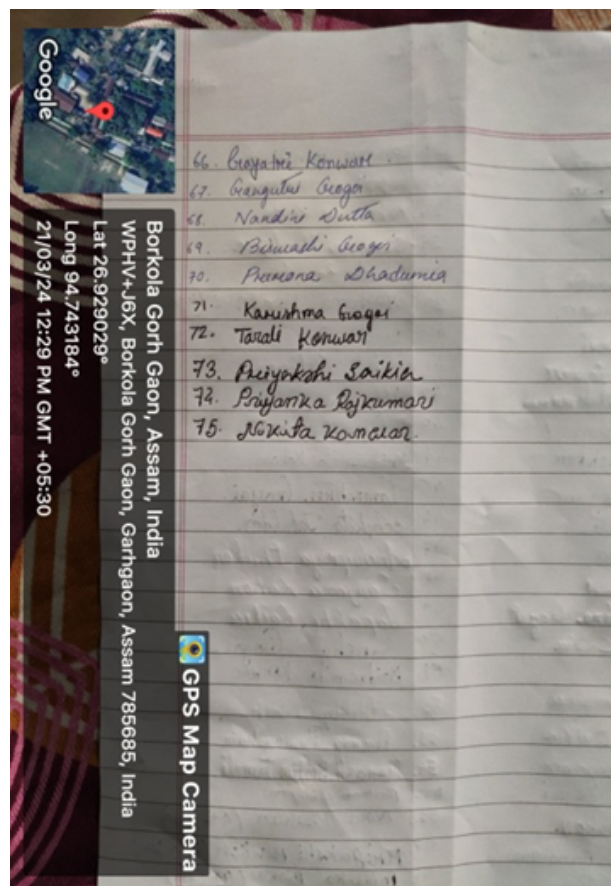 66. Gayatri Konwar
67. Gogoi
68. Nandini Dutta
69. Gogoi
70. Dhadumia
71. Karishma Gogoi
72. Tarali Konwar
73. Priyakshi Saikia
74. Priyanka Rajkumari
75. Nikita Konwar.
Google
GPS Map Camera
Borkola Gorh Gaon, Assam, India
WPHV+J6X, Borkola Gorh Gaon, Garhgaon, Assam 785685, India
Lat 26.929029°
Long 94.743184°
21/03/24 12:29 PM GMT +05:30